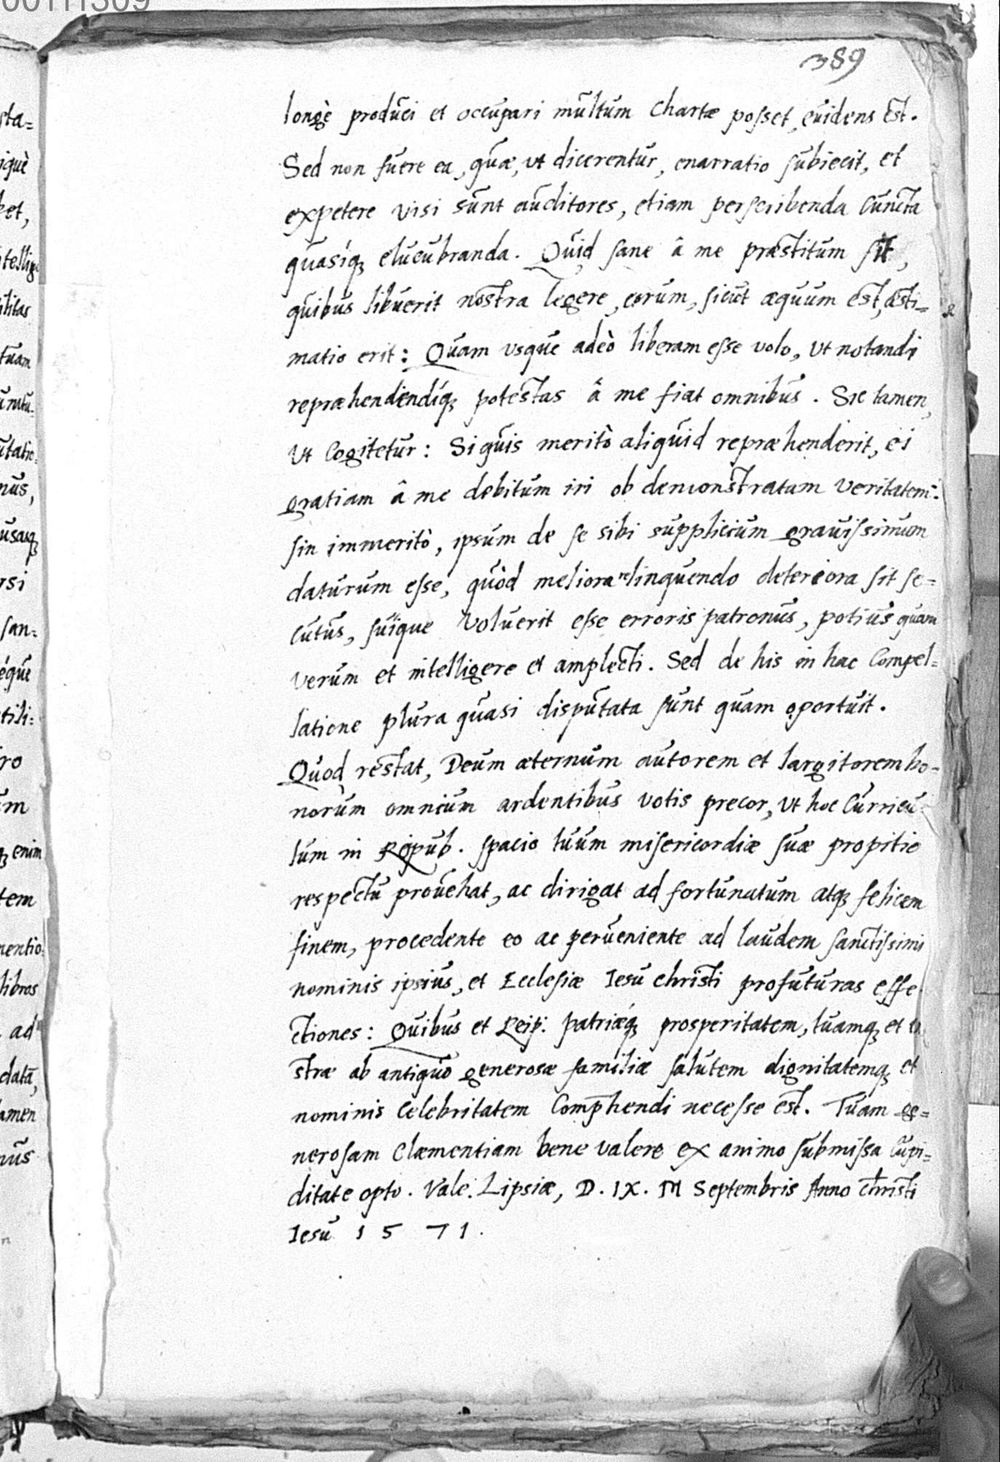 00111309
389
longè produci et occupari multum Chartæ posset, euidens est.
Sed non fuere ea, quæ, vt dicerentur, enarratio subiecit, et
expetere visi sunt auditores, etiam perscribenda Cuncta
quasíq; elucubranda. Quid sane â me præstitum sit,
quibus libuerit nostra legere, eorum, sicut æquum est, æsti-
matio erit: Quam vsque adeò liberam esse volo, vt notandi
repræhendendíq; potestas â me fiat omnibus. Sic tamen,
vt Cogitetur: Si quis meritò aliquid repræhenderit, ei
gratiam â me debitum iri ob demonstratam veritatem:
sin immeritò, ipsum de se sibi supplicium grauissimum
daturum esse, quòd meliora relinquendo deteriora sit se=
cutus, suíque voluerit esse erroris patronus, potius quam
verum et intelligere et amplecti. Sed de his in hac Compel=
latione plura quasi disputata sunt quam oportuit.
Quod restat, Deum æternum autorem et largitorem bo-
norum omnium ardentibus votis precor, vt hoc Curricu-
lum in Repub. spacio tuum misericordiæ suæ propitio
respectu prouehat, ac dirigat ad fortunatum atq; felicem
finem, procedente eo ac perueniente ad laudem sanctissimi
nominis ipsius, et Ecclesiæ Iesu christi profuturas effe
ctiones: Quibus et Reip: patriæq; prosperitatem, tuamq; et
stræ ab antiquo generosæ familiæ salutem dignitatemq; et
nominis Celebritatem Comp̄hendi necesse est. Tuam ge=
nerosam Clæmentiam bene valere ex animo submissa Cupi=
ditate opto. Vale. Lipsiæ, D. IX. M Septembris Anno christi
Iesu 1571.
sta=
iquè
et,
telli
ilitas
tuam
nus,
usaq;
rsi
san=
éque
tili=
ro
um
q; enim
tem
mentio
libros
ad
data,
tamen
nus